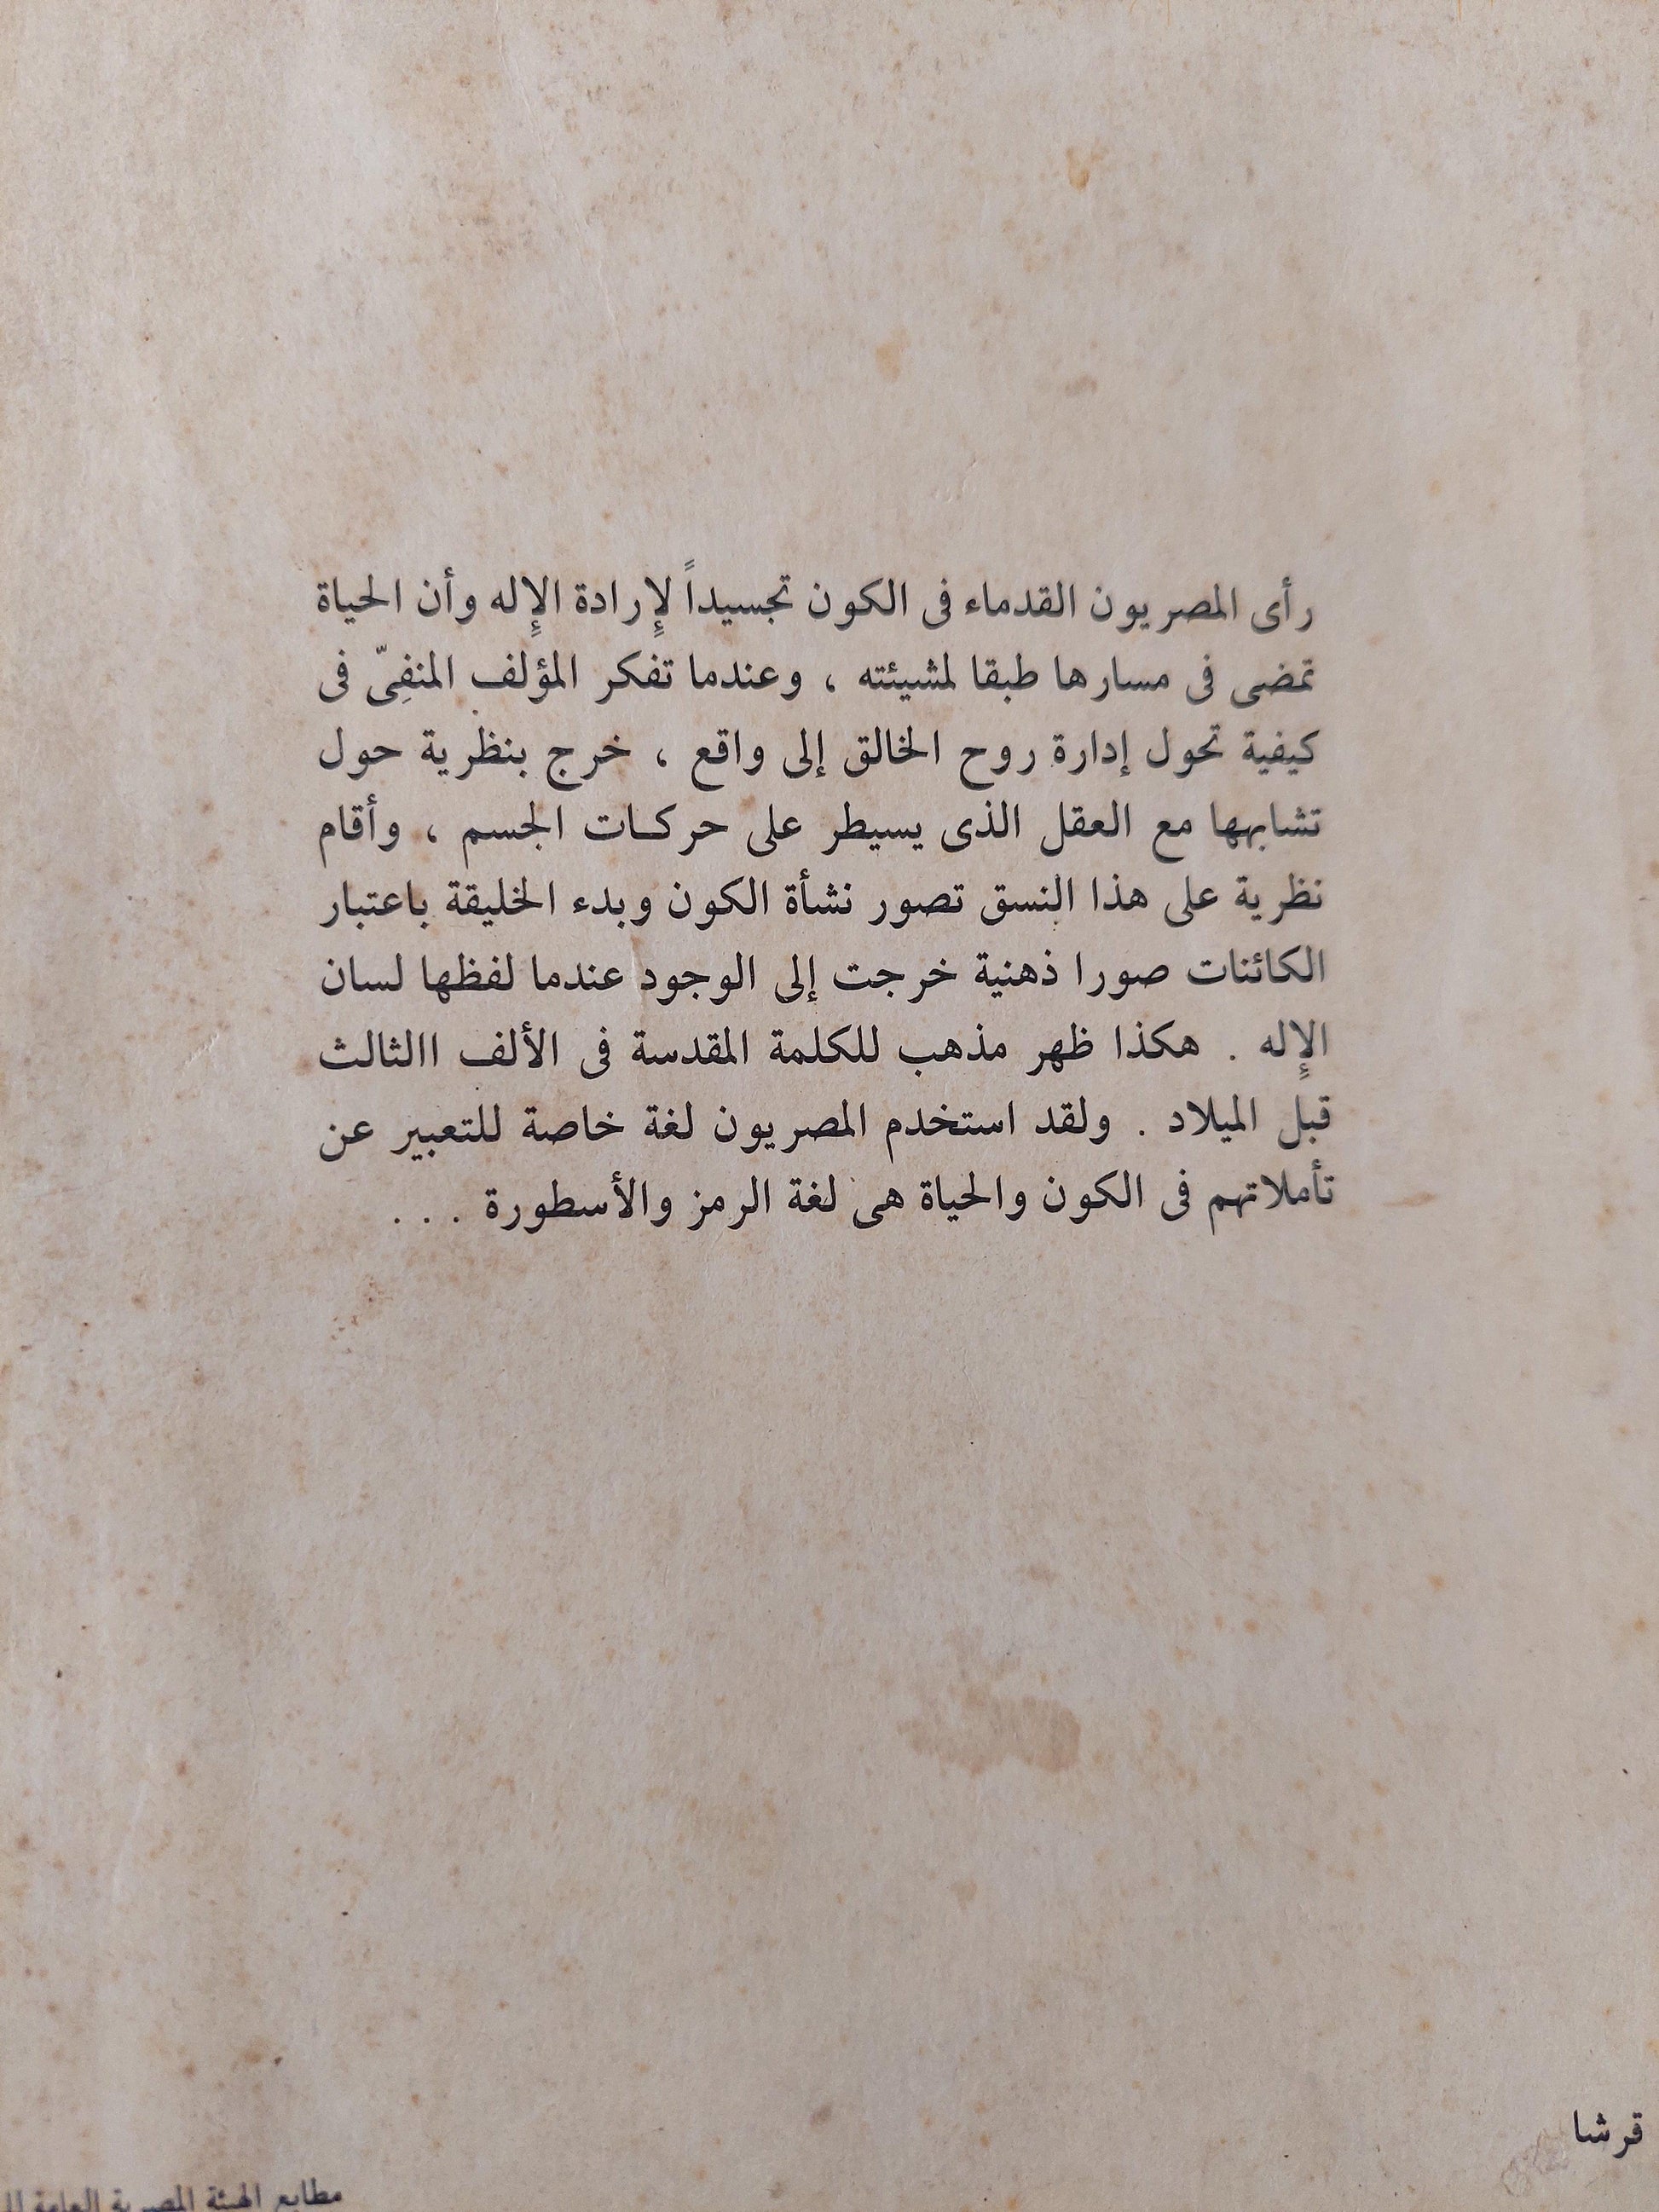 رأى المصريون القدماء فى الكون تجسيداً لإرادة الإله وأن الحياة
تمضى فى مسارها طبقا لمشيئته ، وعندما تفكر المؤلف المنفِىّ فى
كيفية تحول إدارة روح الخالق إلى واقع ، خرج بنظرية حول
تشابهها مع العقل الذى يسيطر على حركات الجسم ، وأقام
نظرية على هذا النسق تصور نشأة الكون وبدء الخليقة باعتبار
الكائنات صورا ذهنية خرجت إلى الوجود عندما لفظها لسان
الإله . هكذا ظهر مذهب للكلمة المقدسة فى الألف االثالث
قبل الميلاد . ولقد استخدم المصريون لغة خاصة للتعبير عن
تأملاتهم فى الكون والحياة هى لغة الرمز والأسطورة . . .
قرشا
مطابع الهيئة المصرية العامة